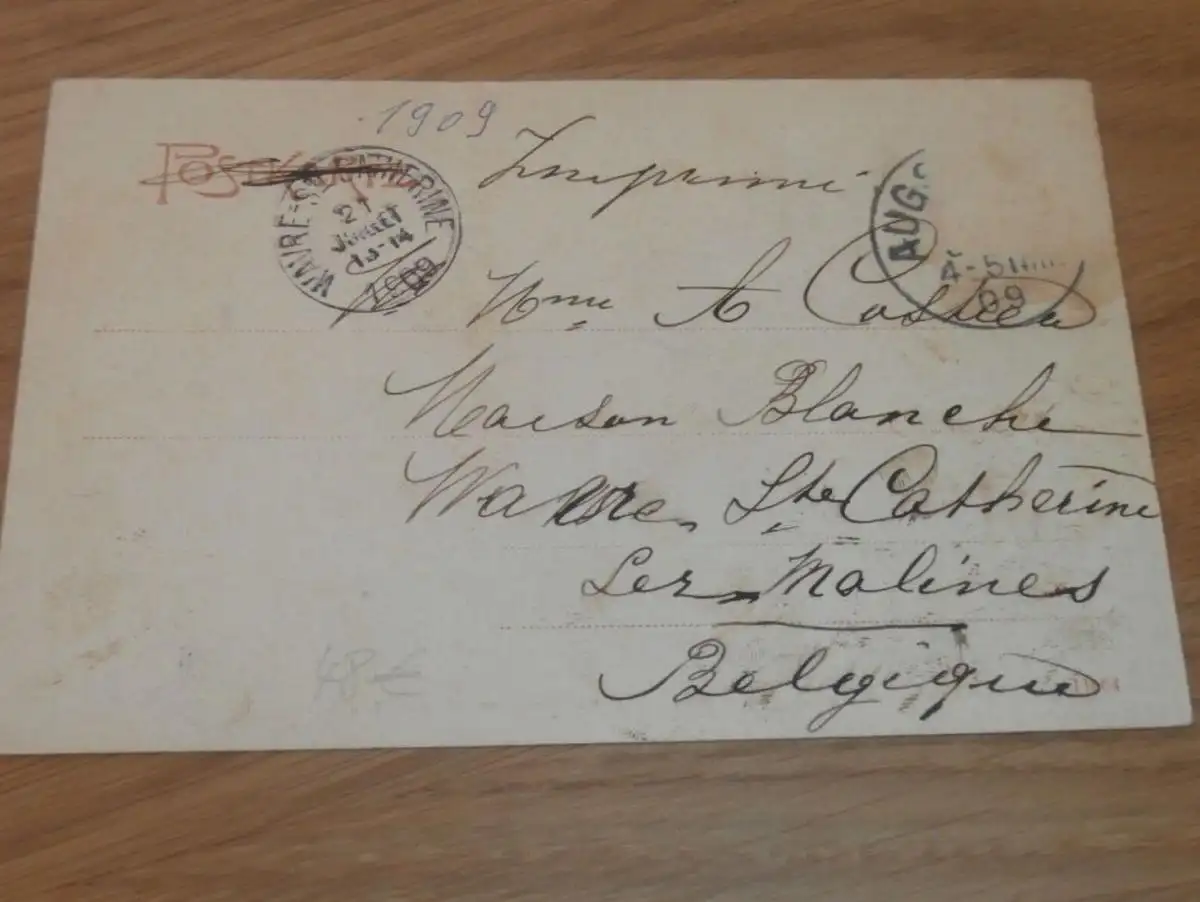 1909
Imprimé
POSTKARTE
WAVRE-STE CATHERINE
21
JUILLET
13-14
1909
AUG.
4-5
09
Mme A
Maison Blanche
Wavre Ste Catherine
Lez Malines
Belgique
48 €